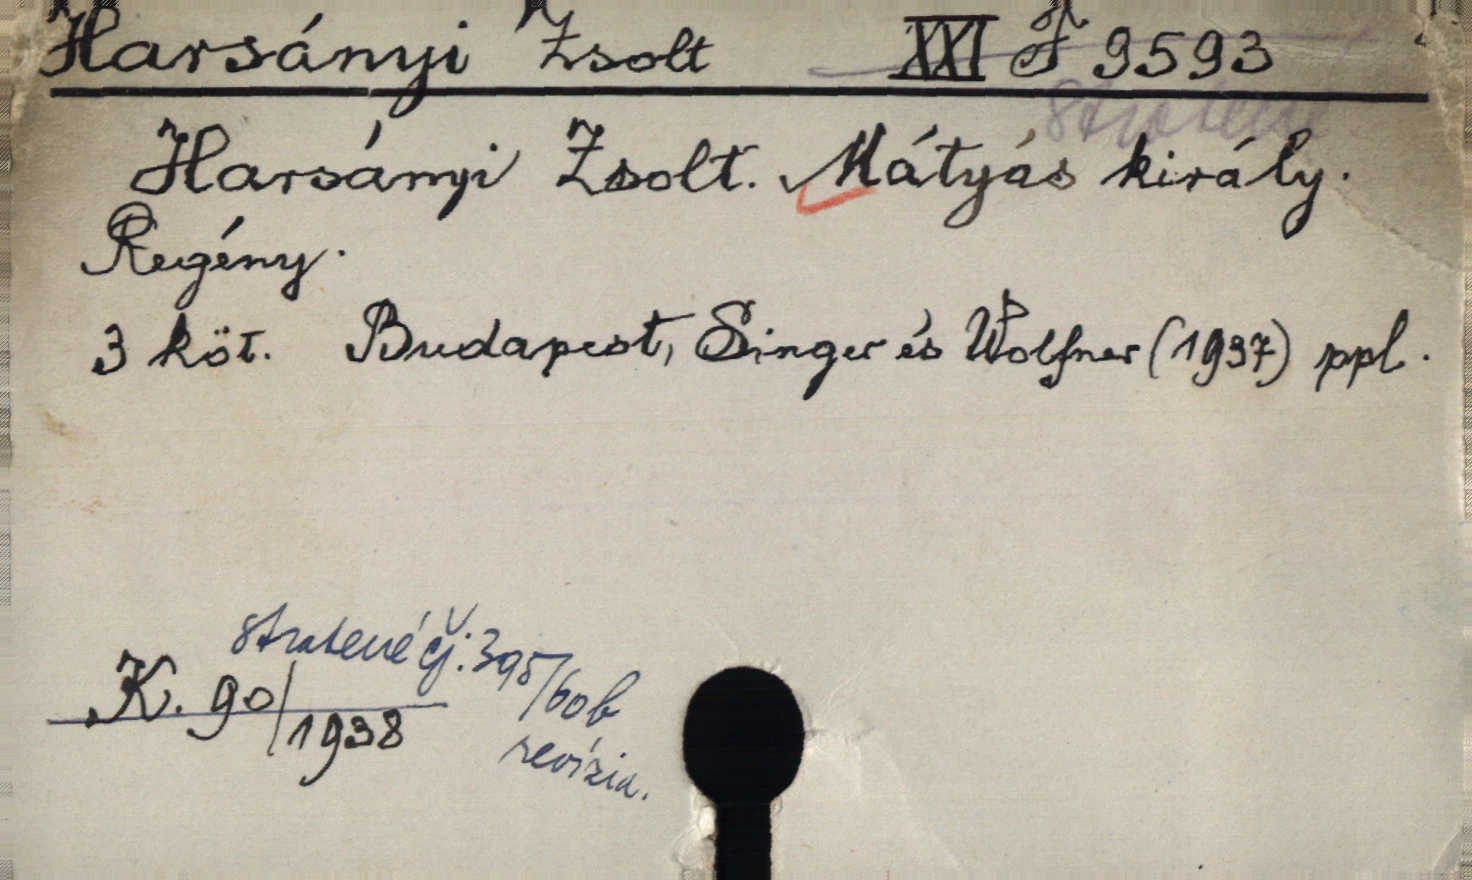 Harsányi Zsolt XXI F 9593
stratené
Harsányi Zsolt. Mátyás király.
Regény.
3 köt. Budapest, Singer és Wolfner (1937) ppl.
stratené čj. 395/60b
K. 90/1938
revízia.